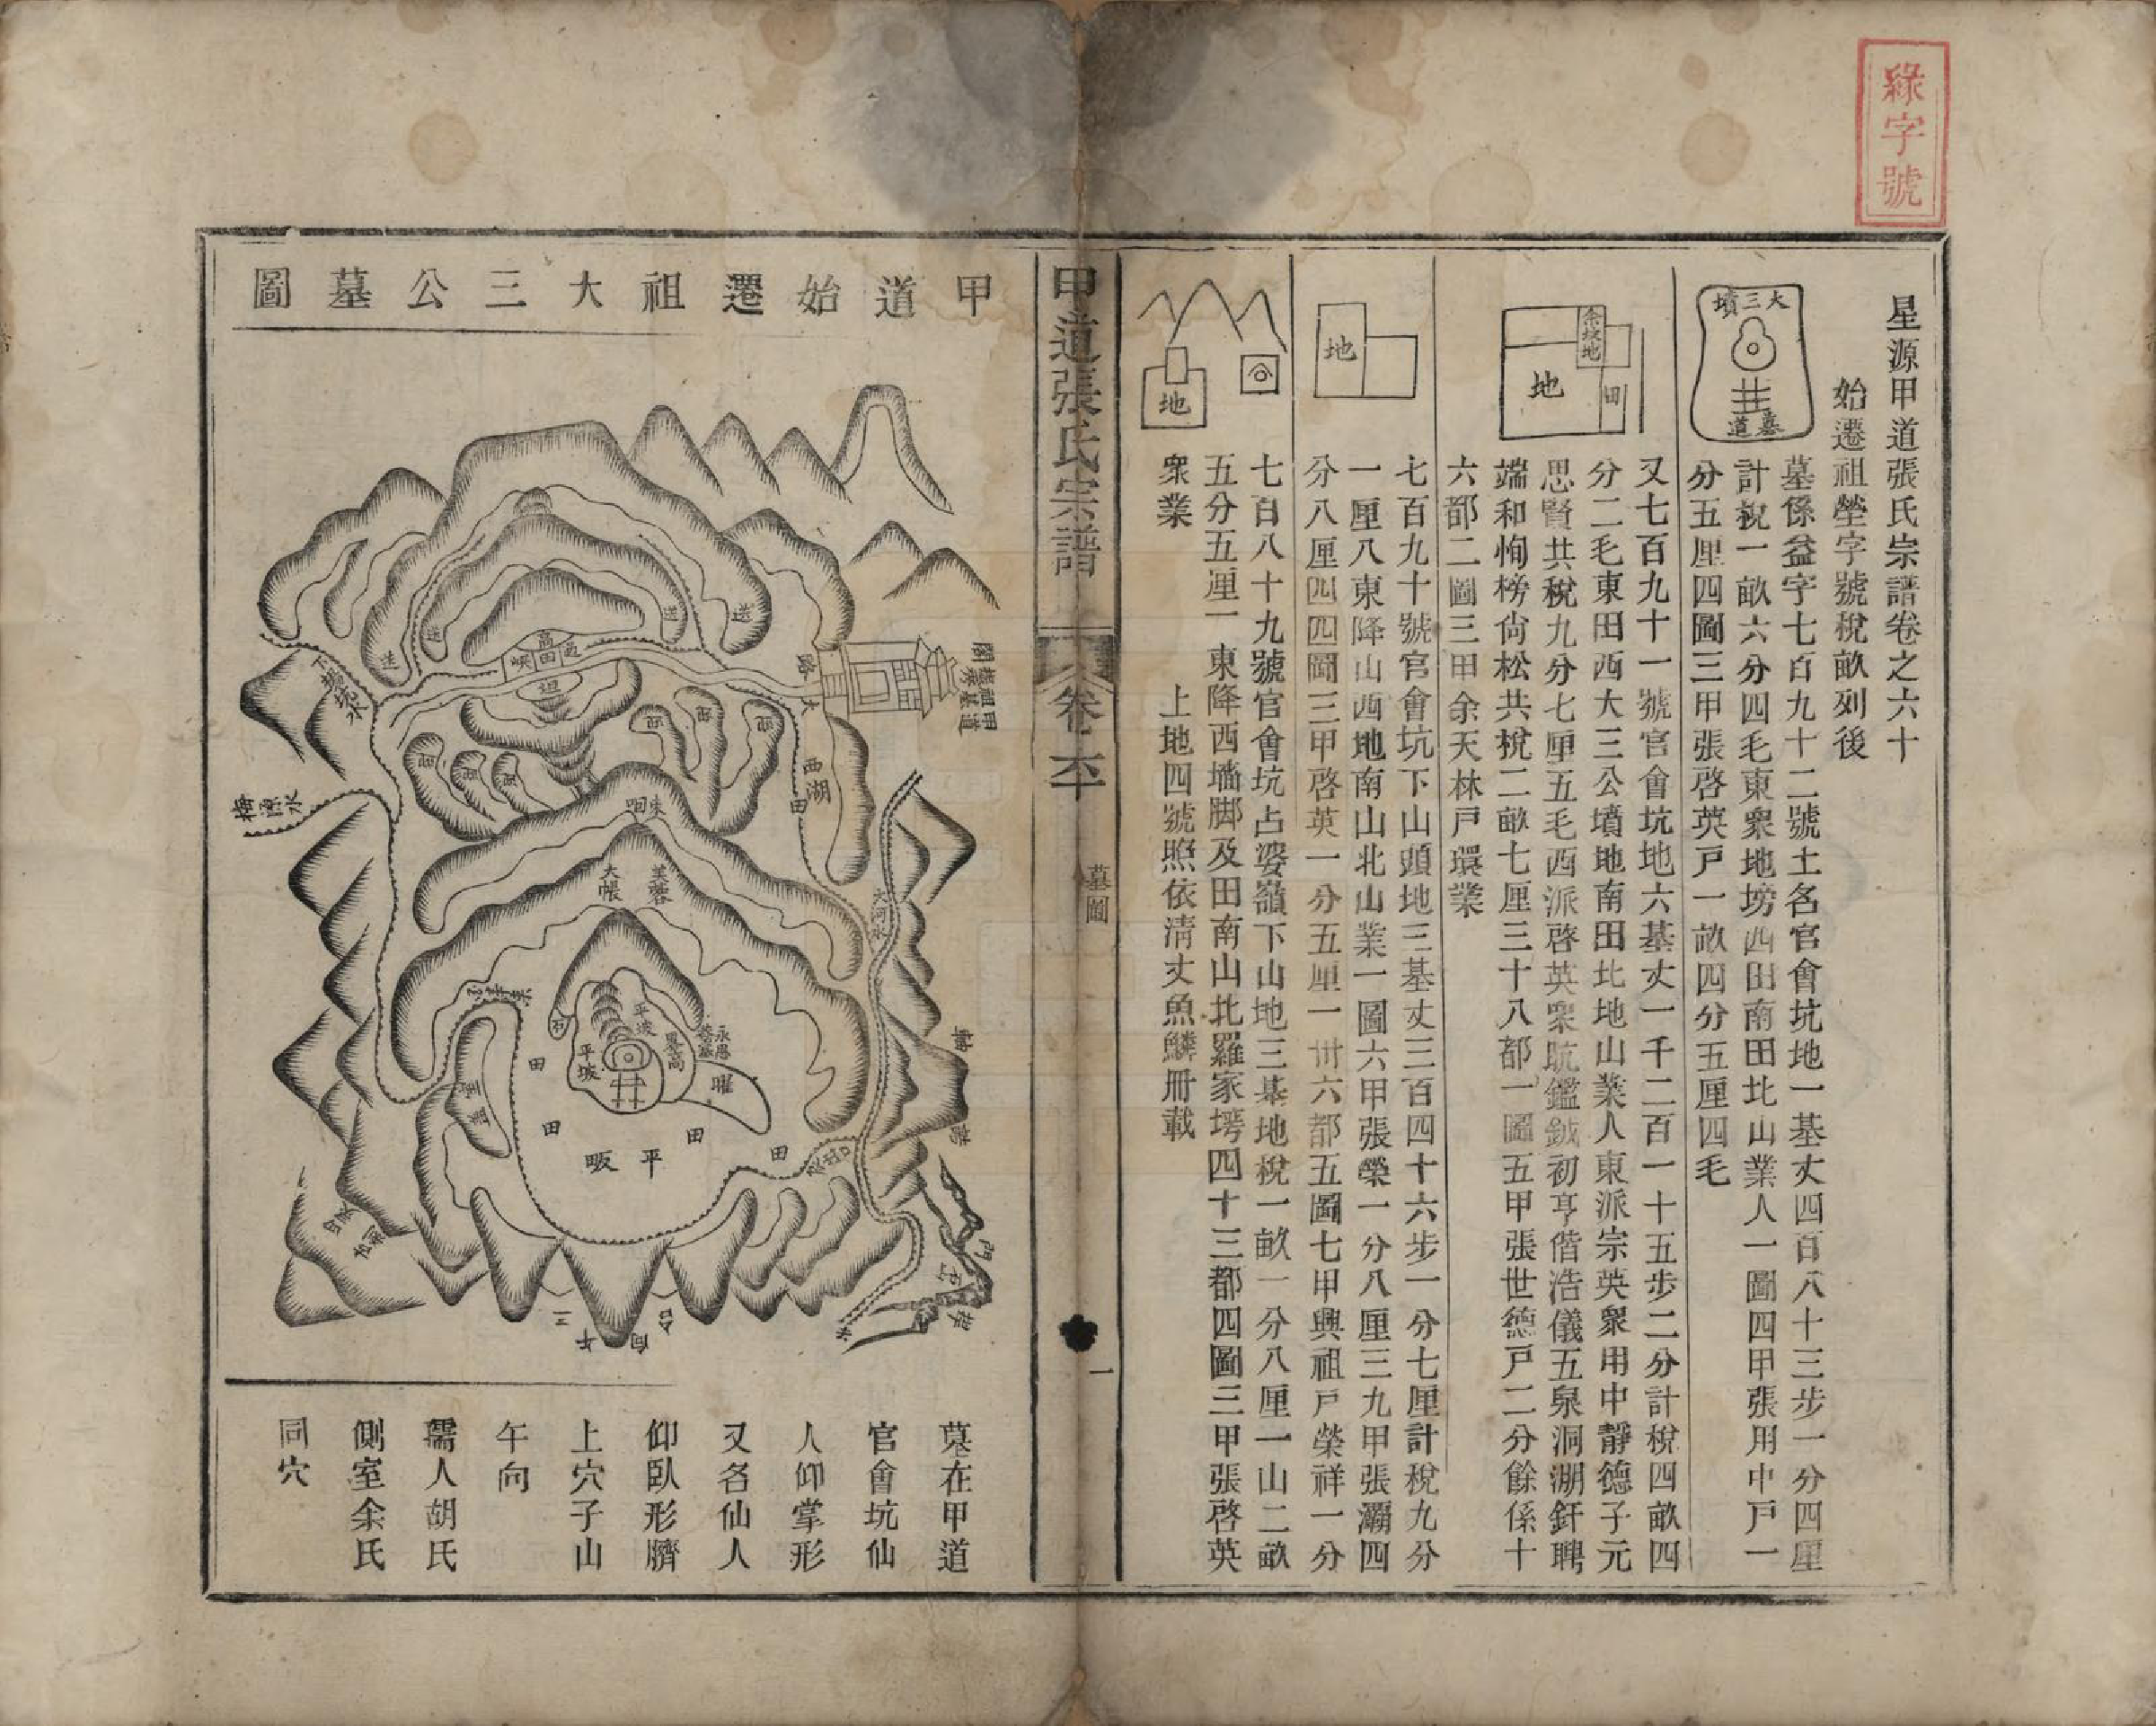 綠字號
星源甲道張氏宗譜卷之六十
始遷祖塋字號稅畝列後
大三墳
墓道
墓係益字七百九十二號土名官會坑地一基丈四百八十三步一分四厘
計稅一畝六分四毛東眾地塝西田南田北山業人一圖四甲張用中戶一
分五厘四圖三甲張啓英戶一畝四分五厘四毛
余墳地
地
田
又七百九十一號官會坑地六基丈一千二百一十五步二分計稅四畝四
分二毛東田西大三公墳地南田北地山業人東派宗英眾用中靜德子元
思賢共稅九分七厘五毛西派啓英眾畝鑑鉞初亨偕浩儀五泉洞湖釬聘
端和恂榜尙松共稅二畝七厘三十八都一圖五甲張世德戶二分餘係十
六都二圖三甲余天林戶環業
地
七百九十號官會坑下山頭地三基丈三百四十六步一分七厘計稅九分
一厘八東降山西地南山北山業一圖六甲張榮一分八厘三九甲張灝四
分八厘四四圖三甲啓英一分五厘一卅六都五圖七甲興祖戶榮祥一分
地
七百八十九號官會坑占婆嶺下山地三基地稅一畝一分八厘一山二畝
五分五厘一東降西墻脚及田南山北羅家塝四十三都四圖三甲張啓英
眾業
上地四號照依清丈魚鱗冊載
甲道張氏宗譜
卷六十
墓圖
一
甲道始遷祖大三公墓圖
甲道
路
大
西湖
田
下塢坑水
梅源水
大河水
芙蓉
大帳
平坡
平坡
石
曜
田
田
田
田
平畈
墓在甲道
官會坑仙
人仰掌形
又名仙人
仰臥形臍
上穴子山
午向
孺人胡氏
側室余氏
同穴